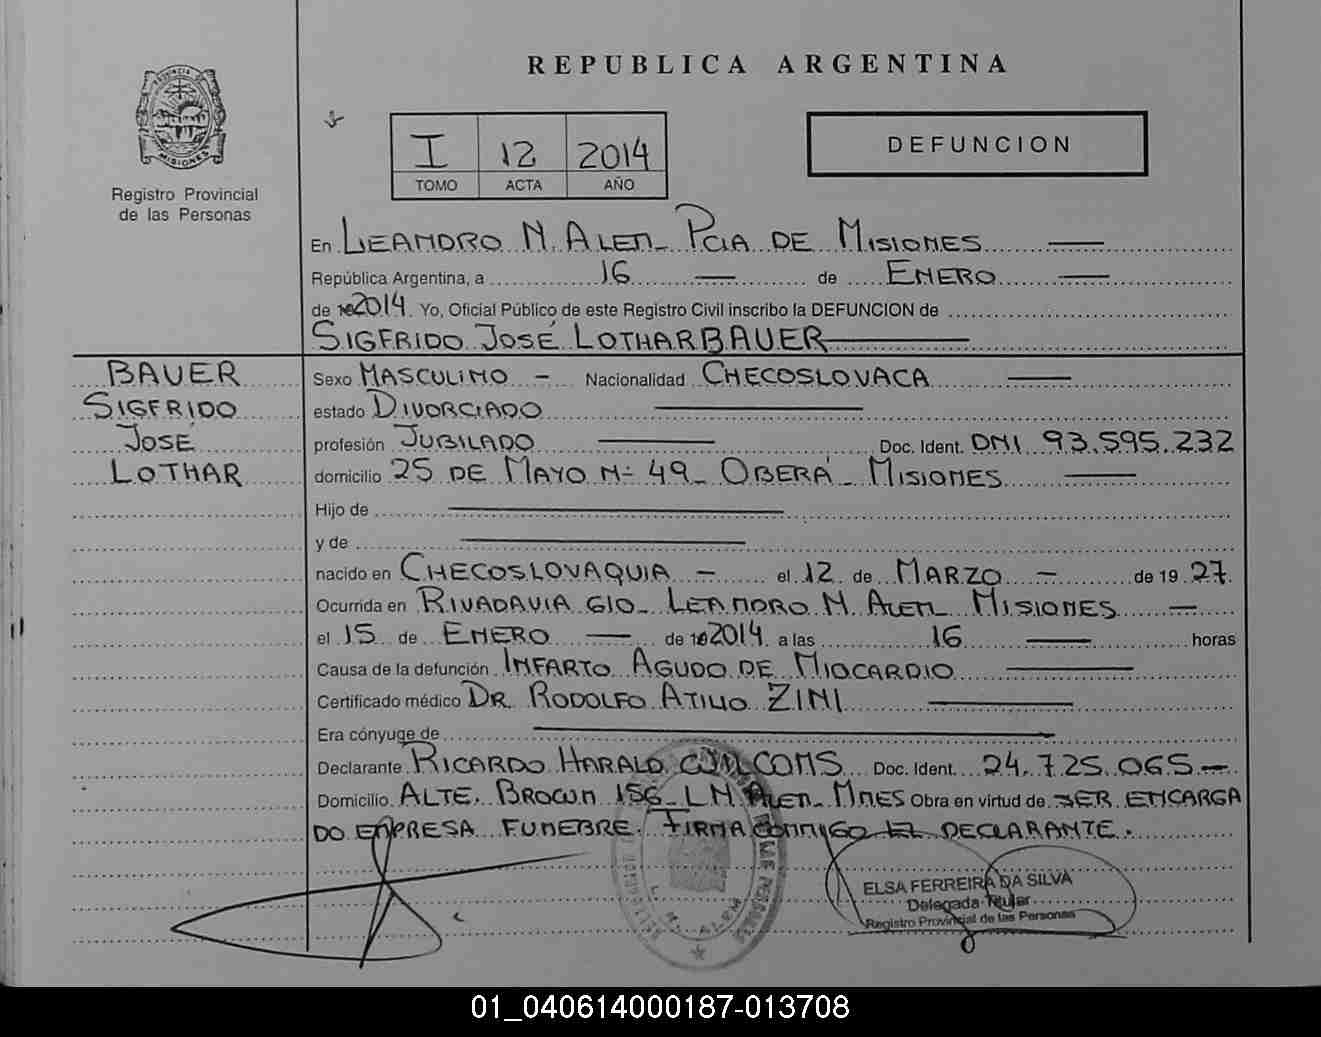 REPUBLICA ARGENTINA
PROVINCIA DE
MISIONES
Registro Provincial
de las Personas
I 12 2014
TOMO ACTA AÑO
DEFUNCION
En LEANDRO N. ALEM_ PCIA DE MISIONES
República Argentina, a 16 de ENERO
de 2014. Yo, Oficial Público de este Registro Civil inscribo la DEFUNCION de
SIGFRIDO JOSÉ LOTHAR BAUER
BAUER
SIGFRIDO
JOSÉ
LOTHAR
Sexo MASCULINO - Nacionalidad CHECOSLOVACA
estado DIVORCIADO
profesión JUBILADO Doc. Ident. DNI 93.595.232
domicilio 25 DE MAYO N- 49_ OBERÁ_ MISIONES
Hijo de
y de
nacido en CHECOSLOVAQUIA - el 12 de MARZO - de 19 27.
Ocurrida en RIVADAVIA 610_ LEANDRO N. ALEM_ MISIONES
el 15 de ENERO de 2014. a las 16 horas
Causa de la defunción INFARTO AGUDO DE MIOCARDIO
Certificado médico DR. RODOLFO ATILIO ZINI
Era cónyuge de
Declarante RICARDO HARALD Doc. Ident. 24.725.065
Domicilio ALTE. BROWN 156_ L.N. ALEM_ MNES Obra en virtud de SER ENCARGA
DO EMPRESA FUNEBRE. FIRMA CONMIGO EL DECLARANTE.
ELSA FERREIRA DA SILVA
Delegada Titular
Registro Provincial de las Personas
01_040614000187-013708